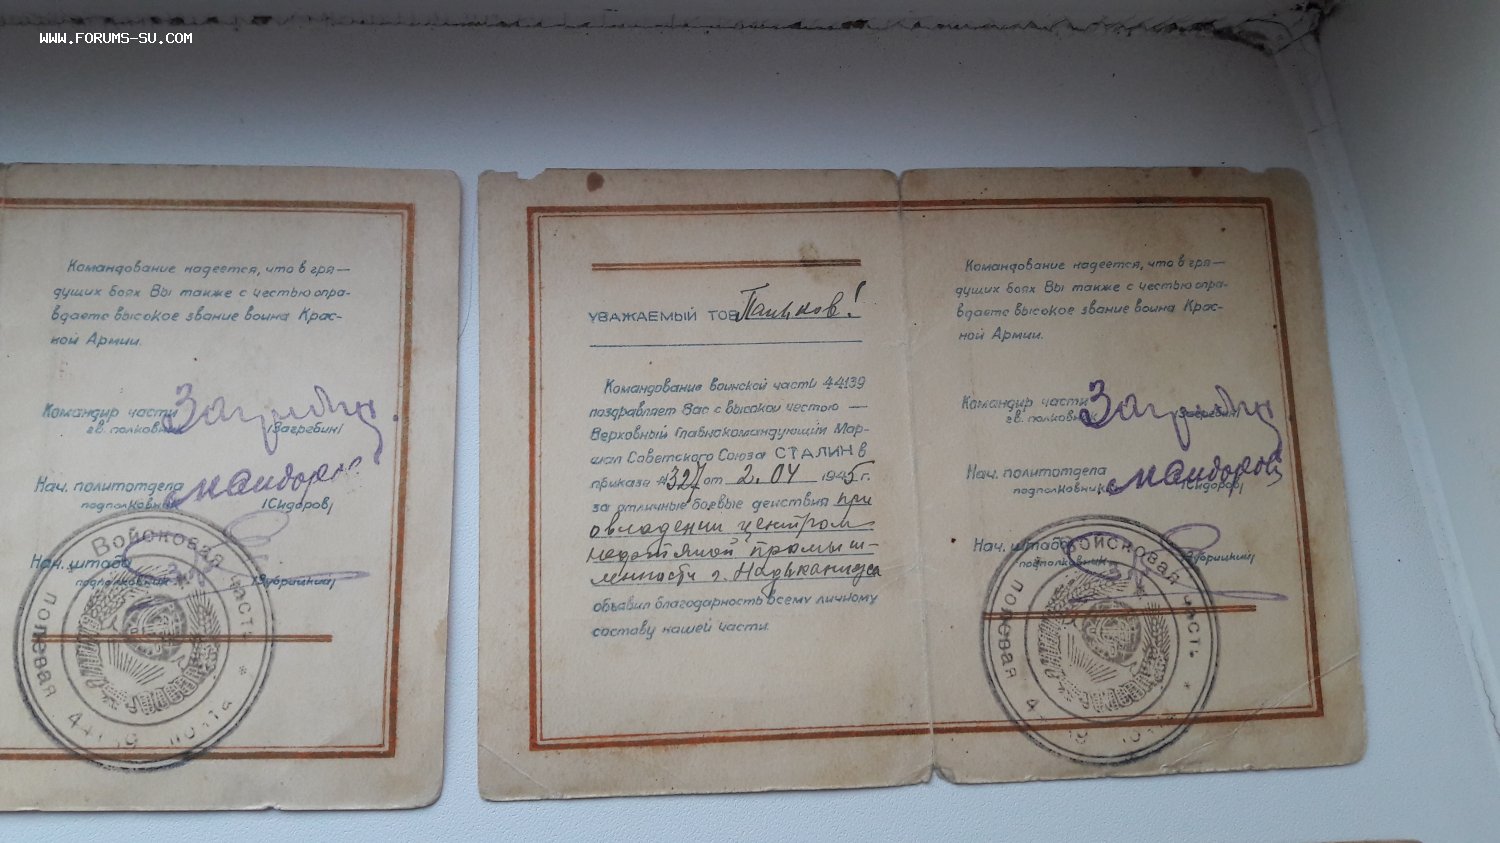 WWW.FORUMS-SU.COM
Командование надеется, что в гря—
дущих боях Вы также с честью опра-
вдаете высокое звание воина Крас-
ной Армии.
Командир части
гв. полковник (Загребин)
Нач. политотдела
подполковник (Сидоров)
Нач. штаба
подполковник (Зубрицкий)
Войсковая часть * полевая почта
УВАЖАЕМЫЙ ТОВ. Паньков!
Командование воинской части 44139
поздравляет Вас с высокой честью —
Верховный Главнокомандующий Мар-
шал Советского Союза СТАЛИН в
приказе № 327 от 2.04 1945 г.
за отличные боевые действия при
овладении центром
нефтяной промыш-
ленности г. Надьканижа
объявил благодарность всему личному
составу нашей части.
Командование надеется, что в гря—
дущих боях Вы также с честью опра-
вдаете высокое звание воина Крас-
ной Армии.
Командир части
гв. полковник (Загребин)
Нач. политотдела
подполковник (Сидоров)
Нач. штаба
подполковник (Зубрицкий)
Войсковая часть * полевая